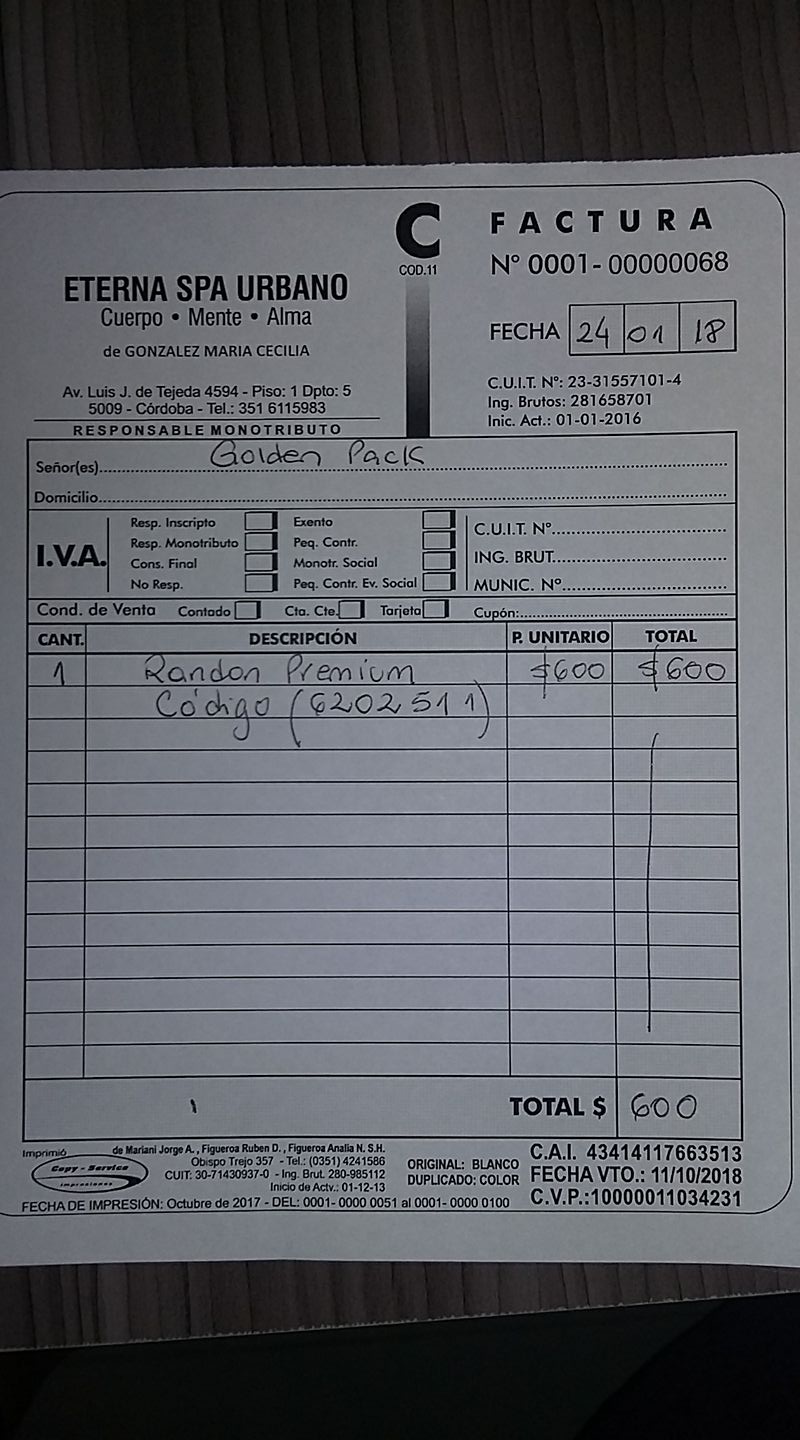 C
COD.11
FACTURA
Nº 0001-00000068
ETERNA SPA URBANO
Cuerpo • Mente • Alma
de GONZALEZ MARIA CECILIA
FECHA 24 01 18
Av. Luis J. de Tejeda 4594 - Piso: 1 Dpto: 5
5009 - Córdoba - Tel.: 351 6115983
RESPONSABLE MONOTRIBUTO
C.U.I.T. Nº: 23-31557101-4
Ing. Brutos: 281658701
Inic. Act.: 01-01-2016
Señor(es) Golden Pack
Domicilio
I.V.A.
Resp. Inscripto Exento C.U.I.T. Nº
Resp. Monotributo Peq. Contr.
Cons. Final Monotr. Social ING. BRUT.
No Resp. Peq. Contr. Ev. Social MUNIC. Nº
Cond. de Venta Contado Cta. Cte. Tarjeta Cupón:
CANT. DESCRIPCIÓN P. UNITARIO TOTAL
1 Randon Premium $600 $600
Código (6202511)
TOTAL $ 600
Imprimió
Copy - Service
impresiones
de Mariani Jorge A., Figueroa Ruben D., Figueroa Analia N. S.H.
Obispo Trejo 357 - Tel.: (0351) 4241586
CUIT: 30-71430937-0 - Ing. Brut. 280-985112
Inicio de Actv.: 01-12-13
ORIGINAL: BLANCO
DUPLICADO: COLOR
C.A.I. 43414117663513
FECHA VTO.: 11/10/2018
C.V.P.:10000011034231
FECHA DE IMPRESIÓN: Octubre de 2017 - DEL: 0001- 0000 0051 al 0001- 0000 0100